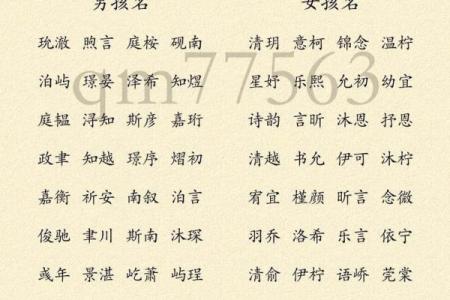 男孩名 女孩名
玧澈 煦言 庭桉 砚南 清玥 意柯 锦念 温柠
泊屿 璟晏 泽希 知煜 星妤 乐熙 允初 幼宜
庭韫 浔知 斯彦 嘉珩 诗韵 言昕 沐恩 抒恩
政聿 知越 璟序 熠初 清越 书允 伊可 沐柠
嘉衡 祈安 南叙 泊言 宥宜 槿颜 昕言 念微
俊驰 聿川 斯南 沐琛 羽乔 洛希 乐言 依宁
彧年 景湛 屹萧 屿珵 清俞 伊柠 语峤 莞棠
qm77563